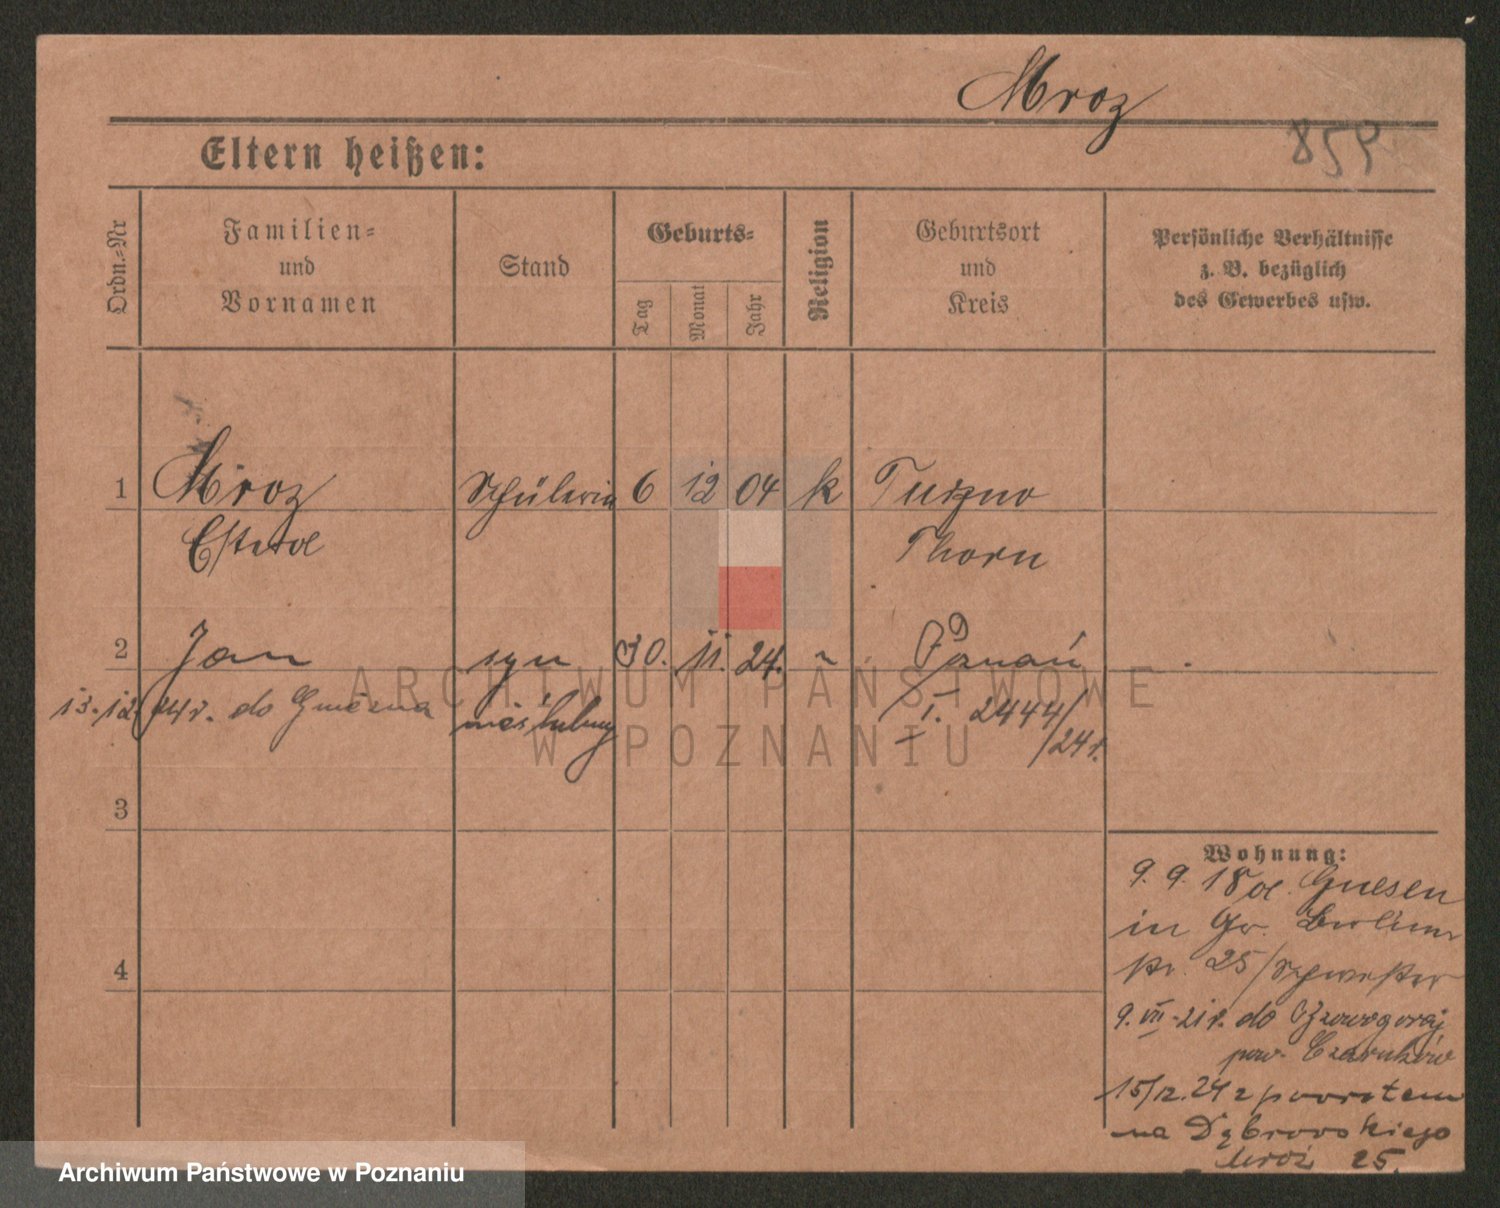 Mroz
859
Eltern heißen:
Ordn.-Nr
Familien-
und
Vornamen
Stand
Geburts-
Tag
Monat
Jahr
Religion
Geburtsort
und
Kreis
Persönliche Verhältnisse
z. B. bezüglich
des Gewerbes usw.
1 Mroz Schülerin 6 12 04 k Turzno
Thorn
2 Jan syn 30. 11. 24. Poznań
13.12 24r. do Gniezna nieślubny I. 2444/24r.
3
4
Wohnung:
9. 9. 18 Gnesen
in Gr. Berliner
str. 25/Schwester
9. VII. 21r. do
pow. Czarnków
15/12. 24 z powrotem
na Dąbrowskiego
Mroz 25.
ARCHIWUM PAŃSTWOWE
W POZNANIU
Archiwum Państwowe w Poznaniu